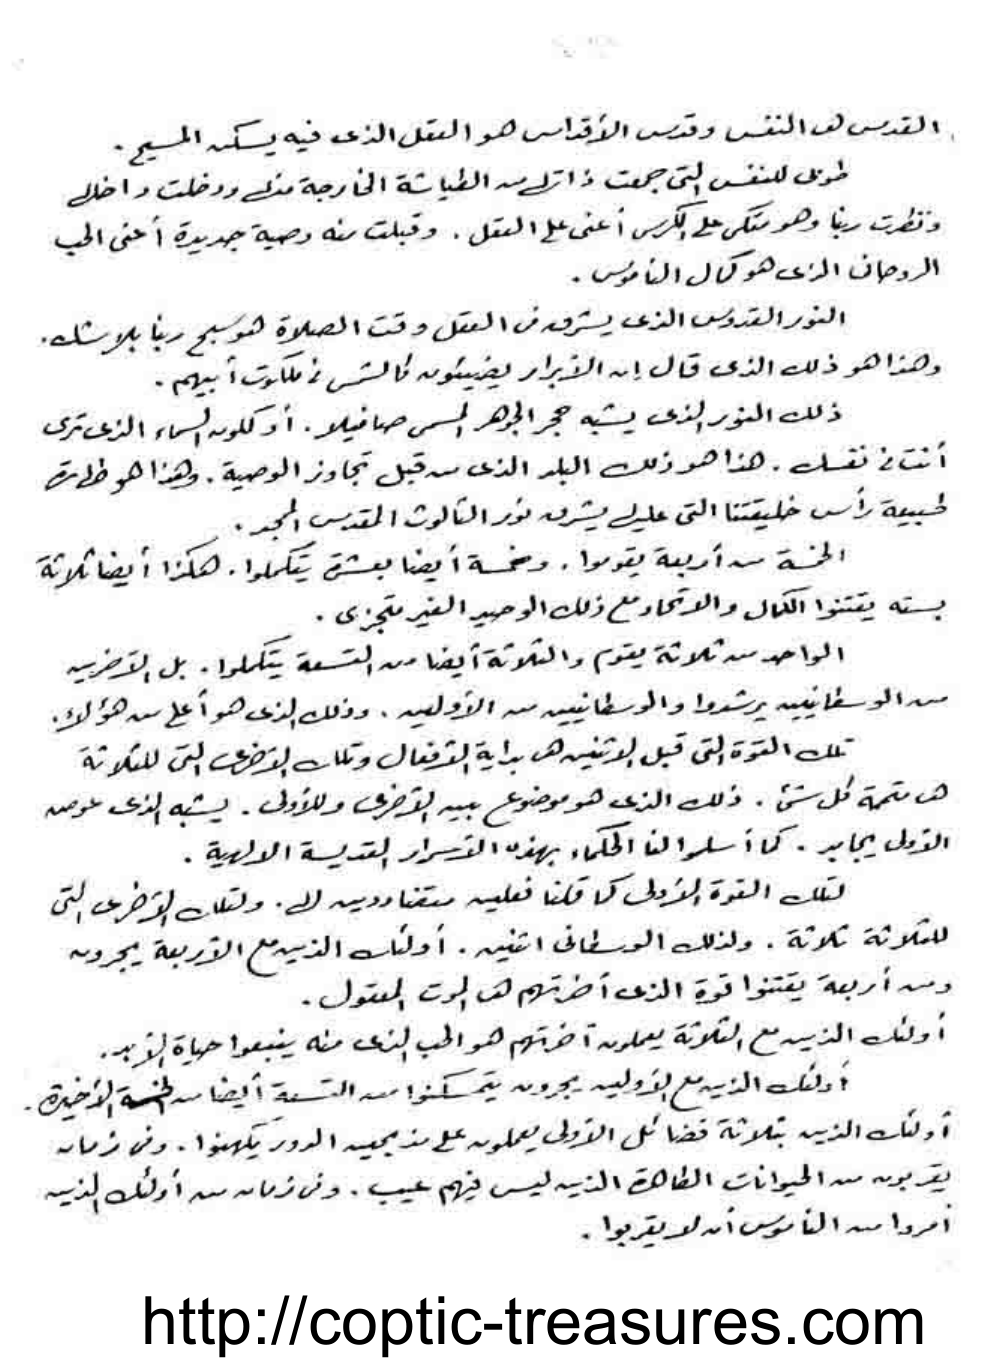 القدس هى النفس وقدس الأقداس هو العقل الذى فيه يسكن المسيح .
طوبى للنفس التى جمعت ذاتها من الطياشة الخارجة منها ودخلت داخلها
ونظرت ربنا وهو متكى على الكرسى أعنى على العقل . وقبلت منه وصية جديدة أعنى الحب
الروحانى الذى هو كمال الناموس .
النور القدوس الذى يشرق فى العقل وقت الصلاة هو مسيح ربنا بلا شك .
وهذا هو ذلك الذى قال إن الأبرار يضيئون كالشمس فى ملكوت أبيهم .
ذلك النور الذى يشبه حجر الجوهر المسمى صافيلا . أو كلون السماء الذى ترى
أنت فى نفسك . هذا هو ذلك البلد الذى من قبل تجاوز الوصية . وهذا هو طهارة
طبيعة رأس خليقتنا التى عليها يشرق نور الثالوث المقدس الممجد .
الخمسة من أربعة يقوموا . وخمسة أيضا بعشرة يتكملوا . هكذا أيضا ثلاثة
بسته يقتنوا الكمال والاتحاد مع ذلك الوحيد الغير متجزى .
الواحد من ثلاثة يقوم والثلاثة أيضا من التسعة يتكملوا . بل الآخرين
من الوسطانيين يرشدوا والوسطانيين من الأولين . وذلك الذى هو أعلى من هؤلاء .
تلك القوة التى قبل الاثنين هى بداية الأفعال وتلك الأخرى التى للثلاثة
هى متممة كل شئ . ذلك الذى هو موضوع بين الأخرى وللأولى . يشبه الذى عوض
الأولى يجاهد . كما أسلموا لنا الحكماء بهذه الأسرار القديسة الالهية .
لتلك القوة الأولى كما قلنا فعلين متضادين لها . ولتلك الأخرى التى
للثلاثة ثلاثة . ولذلك الوسطانى اثنين . أولئك الذين مع الأربعة يجرون
ومن أربعة يقتنوا قوة الذى أخرتهم هى الموت المعقول .
أولئك الذين مع الثلاثة يعملون آخرتهم هو الحب الذى منه ينبعوا حياة الأبد .
أولئك الذين مع الأولين يجرون يتمسكنوا من التسعة أيضا من الخمسة الأخيرة .
أولئك الذين بثلاثة فضائل الأولى يعملون على مذبحين الدور يكهنوا . وفى زمان
يقربون من الحيوانات الطاهرة الذين ليس فيهم عيب . وفى زمان من أولئك الذين
أمروا من الناموس أن لا يقربوا .
http://coptic-treasures.com